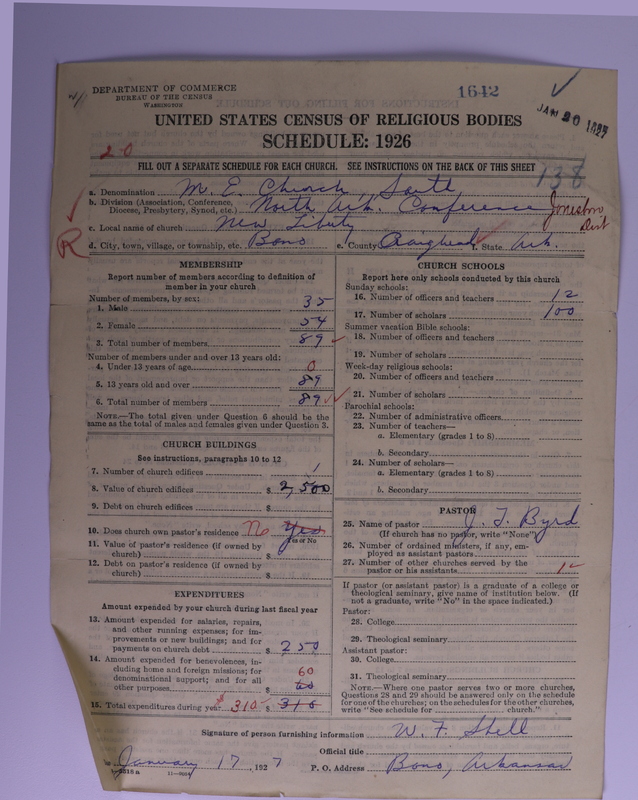 DEPARTMENT OF COMMERCE
BUREAU OF THE CENSUS
WASHINGTON
1642
JAN 20 1927
UNITED STATES CENSUS OF RELIGIOUS BODIES
SCHEDULE: 1926
20
FILL OUT A SEPARATE SCHEDULE FOR EACH CHURCH. SEE INSTRUCTIONS ON THE BACK OF THIS SHEET
138
a. Denomination M. E. Church, South
b. Division (Association, Conference, Diocese, Presbytery, Synod, etc.) North Ark. Conference Jonesboro Dist
c. Local name of church New Liberty
R
d. City, town, village, or township, etc. Bono e. County Craighead f. State Ark.
MEMBERSHIP
Report number of members according to definition of
member in your church
Number of members, by sex:
1. Male 35
2. Female 54
3. Total number of members 89
Number of members under and over 13 years old:
4. Under 13 years of age 0
5. 13 years old and over 89
6. Total number of members 89
NOTE.—The total given under Question 6 should be
same as the total of males and females given under Question 3.
CHURCH BUILDINGS
See instructions, paragraphs 10 to 12
7. Number of church edifices 1
8. Value of church edifices $ 2,500
9. Debt on church edifices $
10. Does church own pastor's residence No Yes
Yes or No
11. Value of pastor's residence (if owned by
church) $
12. Debt on pastor's residence (if owned by
church) $
EXPENDITURES
Amount expended by your church during last fiscal year
13. Amount expended for salaries, repairs,
and other running expenses; for im-
provements or new buildings; and for
payments on church debt $ 250
14. Amount expended for benevolences, in-
cluding home and foreign missions; for
denominational support; and for all
other purposes $ 60
15. Total expenditures during year $ 310
CHURCH SCHOOLS
Report here only schools conducted by this church
Sunday schools:
16. Number of officers and teachers 12
17. Number of scholars 100
Summer vacation Bible schools:
18. Number of officers and teachers
19. Number of scholars
Week-day religious schools:
20. Number of officers and teachers
21. Number of scholars
Parochial schools:
22. Number of administrative officers
23. Number of teachers—
a. Elementary (grades 1 to 8)
b. Secondary
24. Number of scholars—
a. Elementary (grades 1 to 8)
b. Secondary
PASTOR
25. Name of pastor J. T. Byrd
(If church has no pastor, write "None")
26. Number of ordained ministers, if any, em-
ployed as assistant pastors
27. Number of other churches served by the
pastor or his assistants
If pastor (or assistant pastor) is a graduate of a college or
theological seminary, give name of institution below. (If
not a graduate, write "No" in the space indicated.)
Pastor:
28. College
29. Theological seminary
Assistant pastor:
30. College
31. Theological seminary
NOTE.—Where one pastor serves two or more churches,
Questions 28 and 29 should be answered only on the schedule
for one of the churches; on the schedules for the other churches,
write "See schedule for church."
Signature of person furnishing information W. F. Shell
Official title
January 17, 1927 P. O. Address Bono, Arkansas